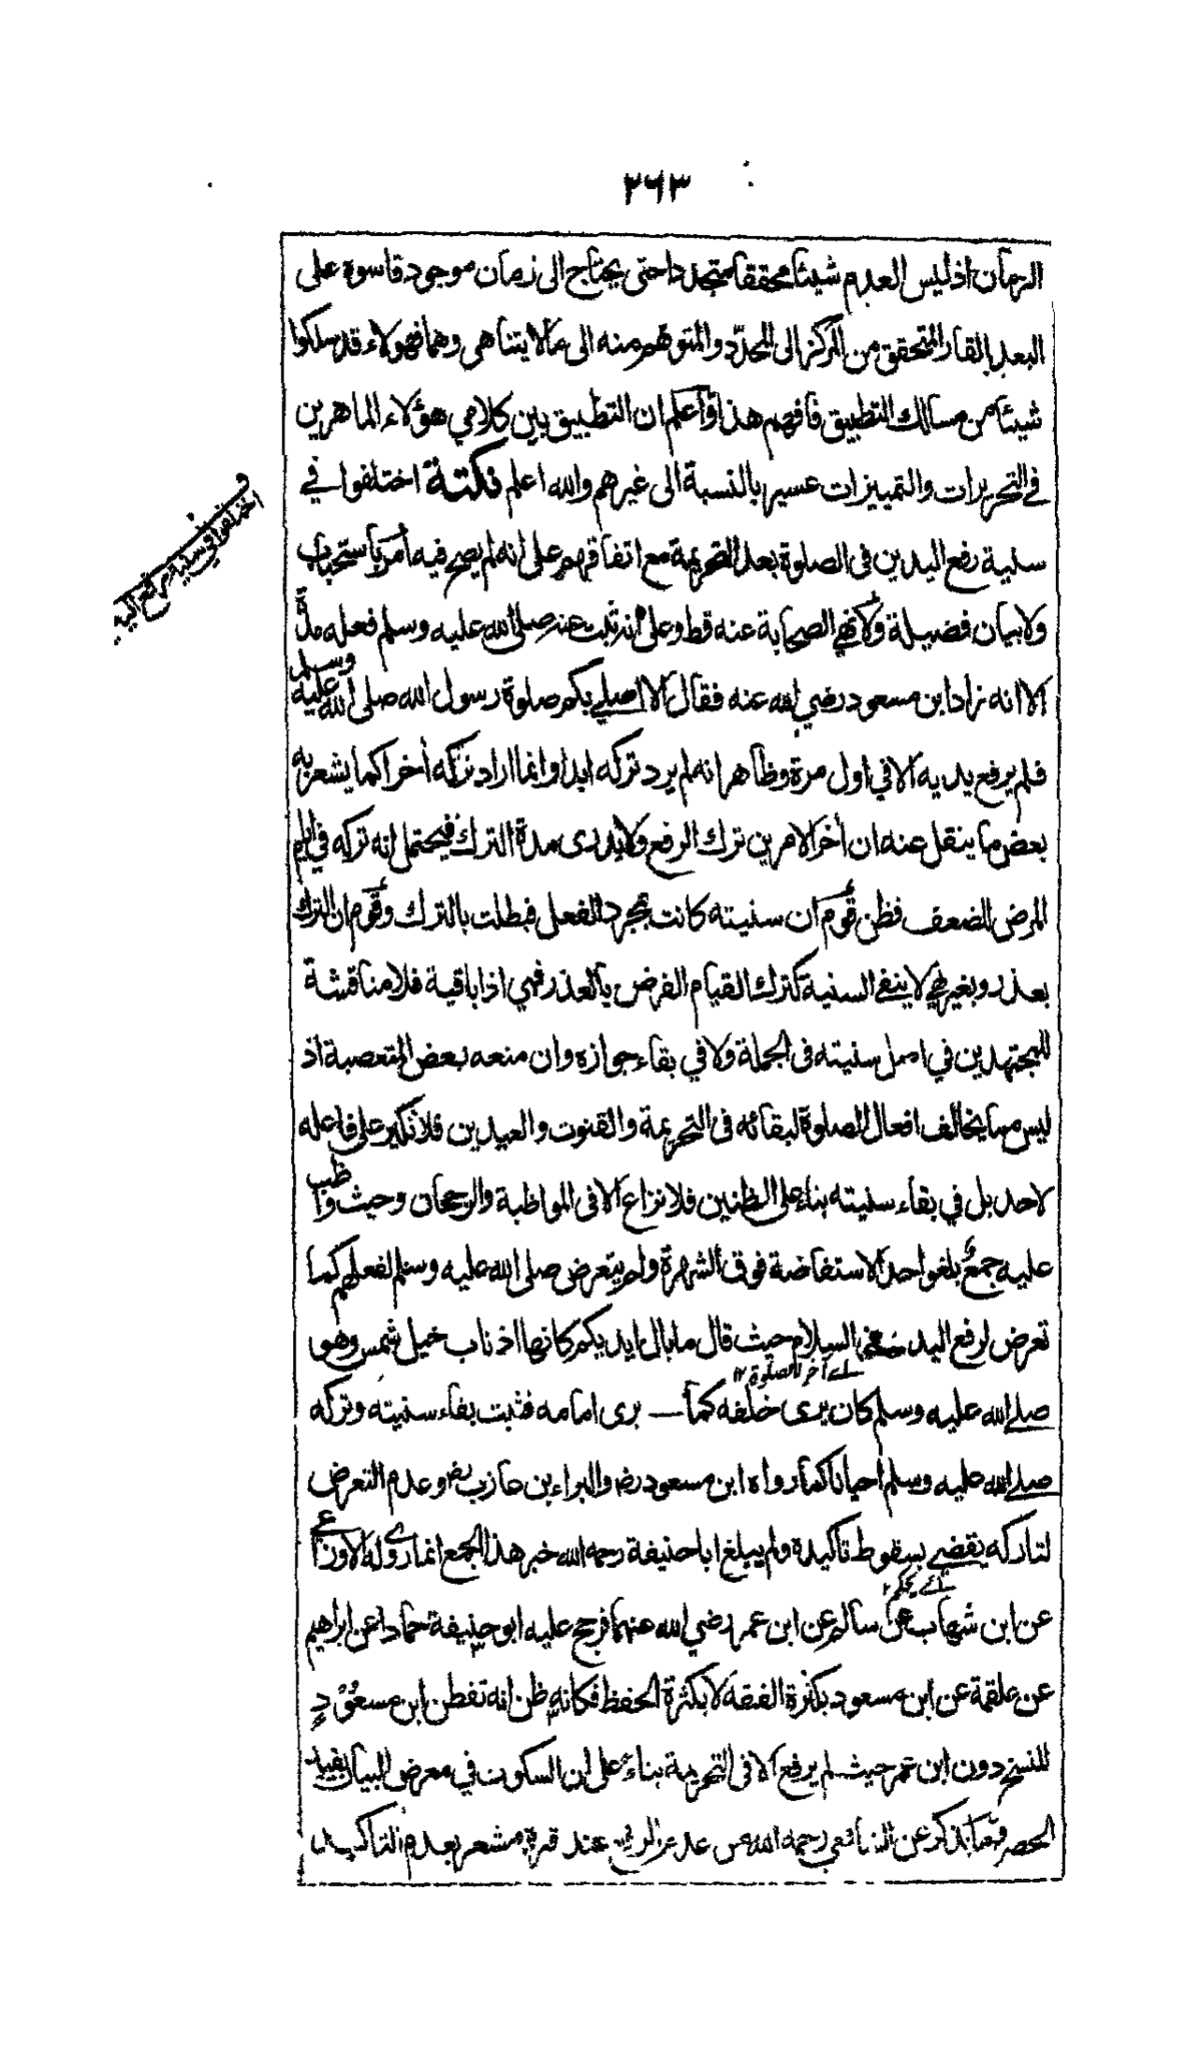 ٢٦٣
الزمان اذ ليس العدم شيئا محققا متجددا حتى يحتاج الى زمان موجود قاسوه على
البعد القار المتحقق من المركز الى المحدّد والمتوهم منه الى مالا يتناهى وهما فهولاء قد سلكوا
شيئا من مسالك التطبيق فافهم هذا واعلم ان التطبيق بين كلامي هؤلاء الماهرين
في التحريرات والتمييزات عسير بالنسبة الى غيرهم والله اعلم نكتة اختلفوا في
سنية رفع اليدين فى الصلوة بعد التحريمة مع اتفاقهم على انه لم يصح فيه امر باستحباب
ولا بيان فضيلة ولا نهي الصحابة عنه قط وعلى انه ثبت عنه صلى الله عليه وسلم فعله مدّة
الا انه زاد ابن مسعود رضي الله عنه فقال الا اصلي بكم صلوة رسول الله صلى الله عليه وسلم
فلم يرفع يديه الا في اول مرة وظاهر انه لم يرد تركه ابدا وانما اراد تركه أخرا كما يشعر به
بعض ما ينقل عنه ان أخر الامرين ترك الرفع ولا يدرى مدة الترك فيحتمل انه تركه في ايام
المرض للضعف فظن قوم ان سنيته كانت بمجرد الفعل فبطلت بالترك وقوم ان الترك
بعذر وبغير نهي لا ينفي السنية كترك القيام الفرض بالعذر فهي اذا باقية فلا مناقشة
للمجتهدين في اصل سنيته فى الجملة ولا في بقاء جوازه وان منعه بعض المتعصبة اذ
ليس مما يخالف افعال الصلوة لبقائه فى التحريمة والقنوت والعيدين فلا نكير على فاعله
لاحد بل في بقاء سنيته بناء على الظنين فلا نزاع الا فى المواظبة والرجحان وحيث واظب
عليه جمع بلغوا حد الاستفاضة فوق الشهرة ولم يتعرض صلى الله عليه وسلم لفعلهم كما
تعرض لرفع اليد عند السلام حيث قال ما بال ايديكم كانها اذناب خيل شمس وهو
اے آخر الصلوة ١٢
صلى الله عليه وسلم كان يرى خلفه كما يرى امامه فثبت بقاء سنيته وتركه
صلى الله عليه وسلم احيانا كما رواه ابن مسعود رض والبراء بن عازب رض وعدم التعرض
لتاركه يقضي بسقوط تاكيده ولم يبلغ ابا حنيفة رحمه الله خبر هذا الجمع انما روى له الاوزاعي
اے يحكم ١٢
عن ابن شهاب عن سالم عن ابن عمر رضي الله عنهما فرجح عليه ابو حنيفة حمادا عن ابراهيم
عن علقمة عن ابن مسعود بكثرة الفقه لا بكثرة الحفظ فكانه ظن انه تفطن ابن مسعود
للنسخ دون ابن عمر حيث لم يرفع الا فى التحريمة بناء على ان السكوت في معرض البيان يفيد
الحصر وما يذكر عن الشافعي رحمه الله من عدم الرفع عند قبره مشعر بعدم التاكيد
اختلفوا في سنية رفع اليد